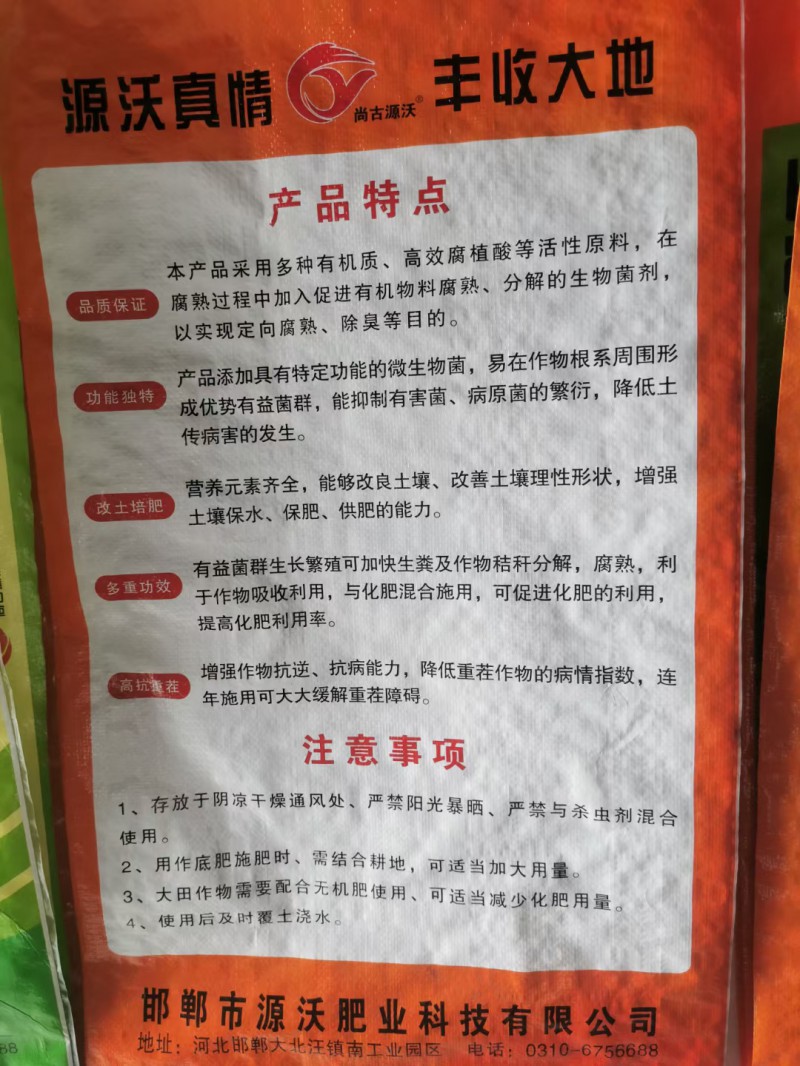 源沃真情 尚古源沃® 丰收大地
产品特点
品质保证
本产品采用多种有机质、高效腐植酸等活性原料，在
腐熟过程中加入促进有机物料腐熟、分解的生物菌剂，
以实现定向腐熟、除臭等目的。
功能独特
产品添加具有特定功能的微生物菌，易在作物根系周围形
成优势有益菌群，能抑制有害菌、病原菌的繁衍，降低土
传病害的发生。
改土培肥
营养元素齐全，能够改良土壤、改善土壤理性形状，增强
土壤保水、保肥、供肥的能力。
多重功效
有益菌群生长繁殖可加快生粪及作物秸秆分解，腐熟，利
于作物吸收利用，与化肥混合施用，可促进化肥的利用，
提高化肥利用率。
高抗重茬
增强作物抗逆、抗病能力，降低重茬作物的病情指数，连
年施用可大大缓解重茬障碍。
注意事项
1、存放于阴凉干燥通风处、严禁阳光暴晒、严禁与杀虫剂混合
使用。
2、用作底肥施肥时、需结合耕地，可适当加大用量。
3、大田作物需要配合无机肥使用、可适当减少化肥用量。
4、使用后及时覆土浇水。
邯郸市源沃肥业科技有限公司
地址：河北邯郸大北汪镇南工业园区 电话：0310-6756688
88